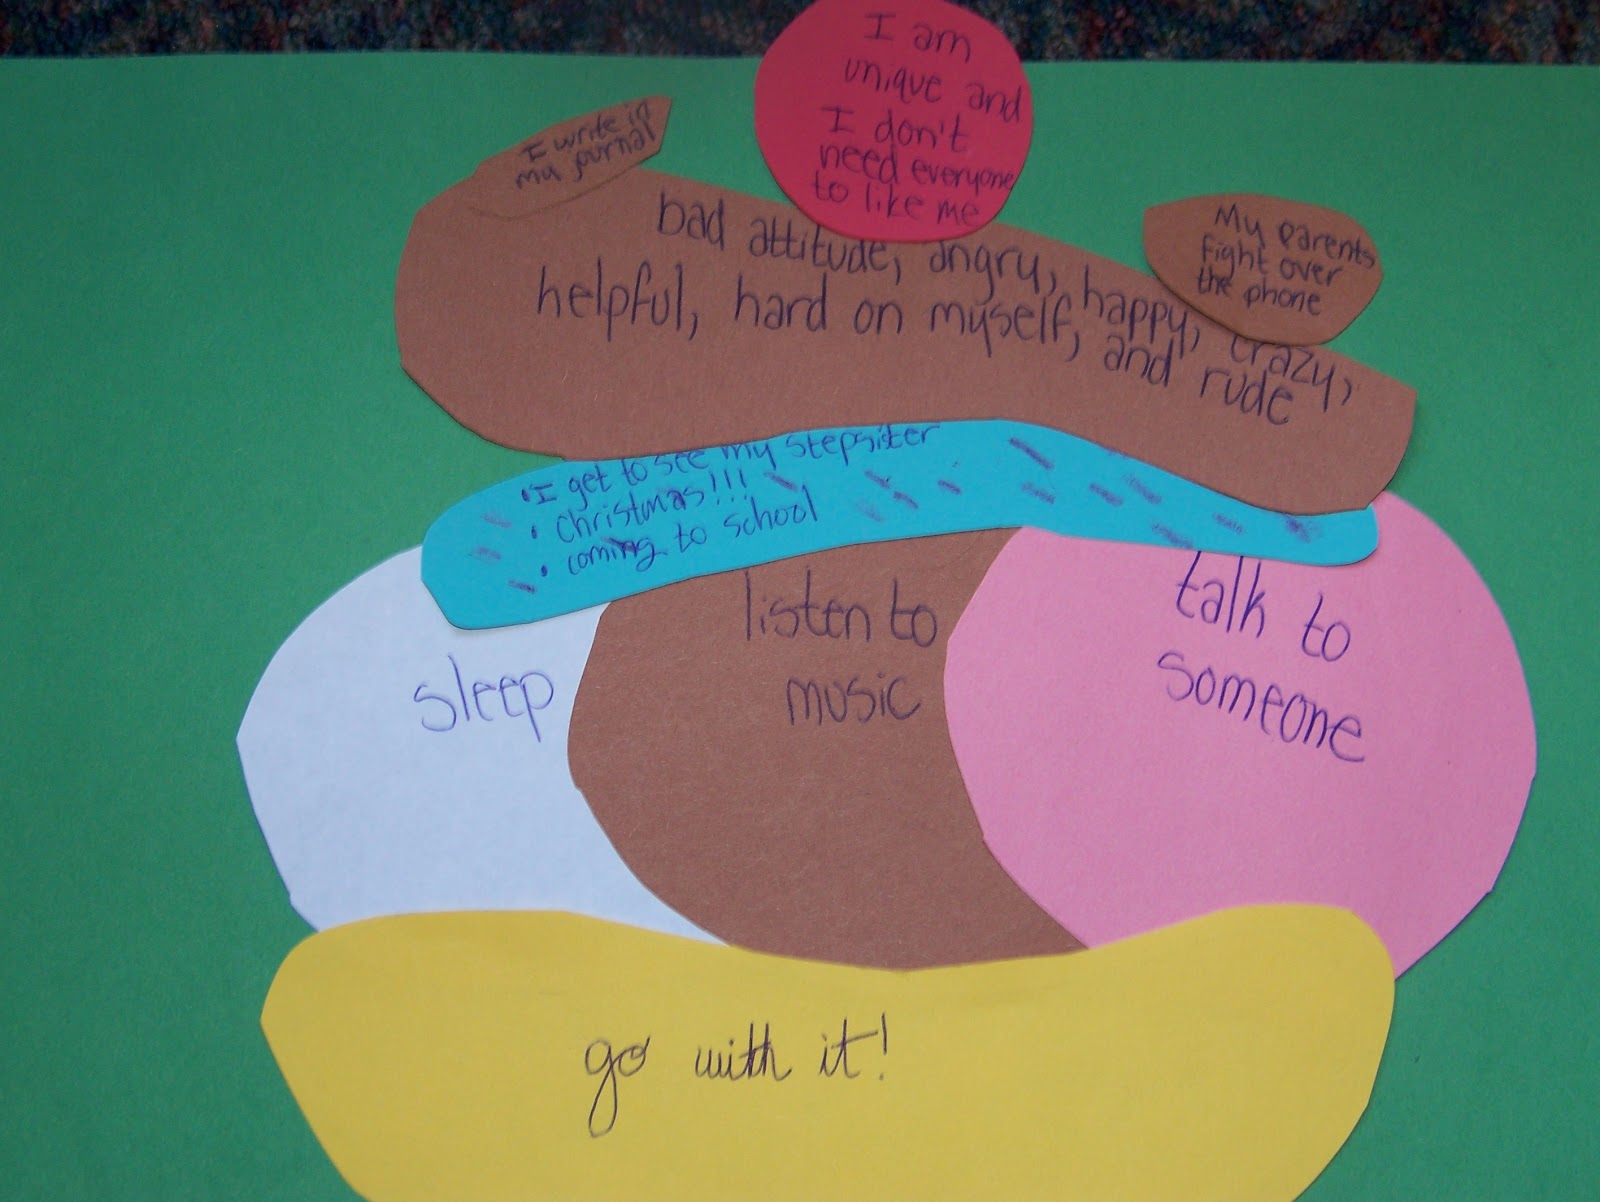 I am
unique and
I don't
need everyone
to like me
I write in
my journal
My parents
fight over
the phone
bad attitude, angry, happy, crazy,
helpful, hard on myself, and rude
• I get to see my stepsiter
• Christmas!!!
• coming to school
sleep
listen to
music
talk to
someone
go with it!